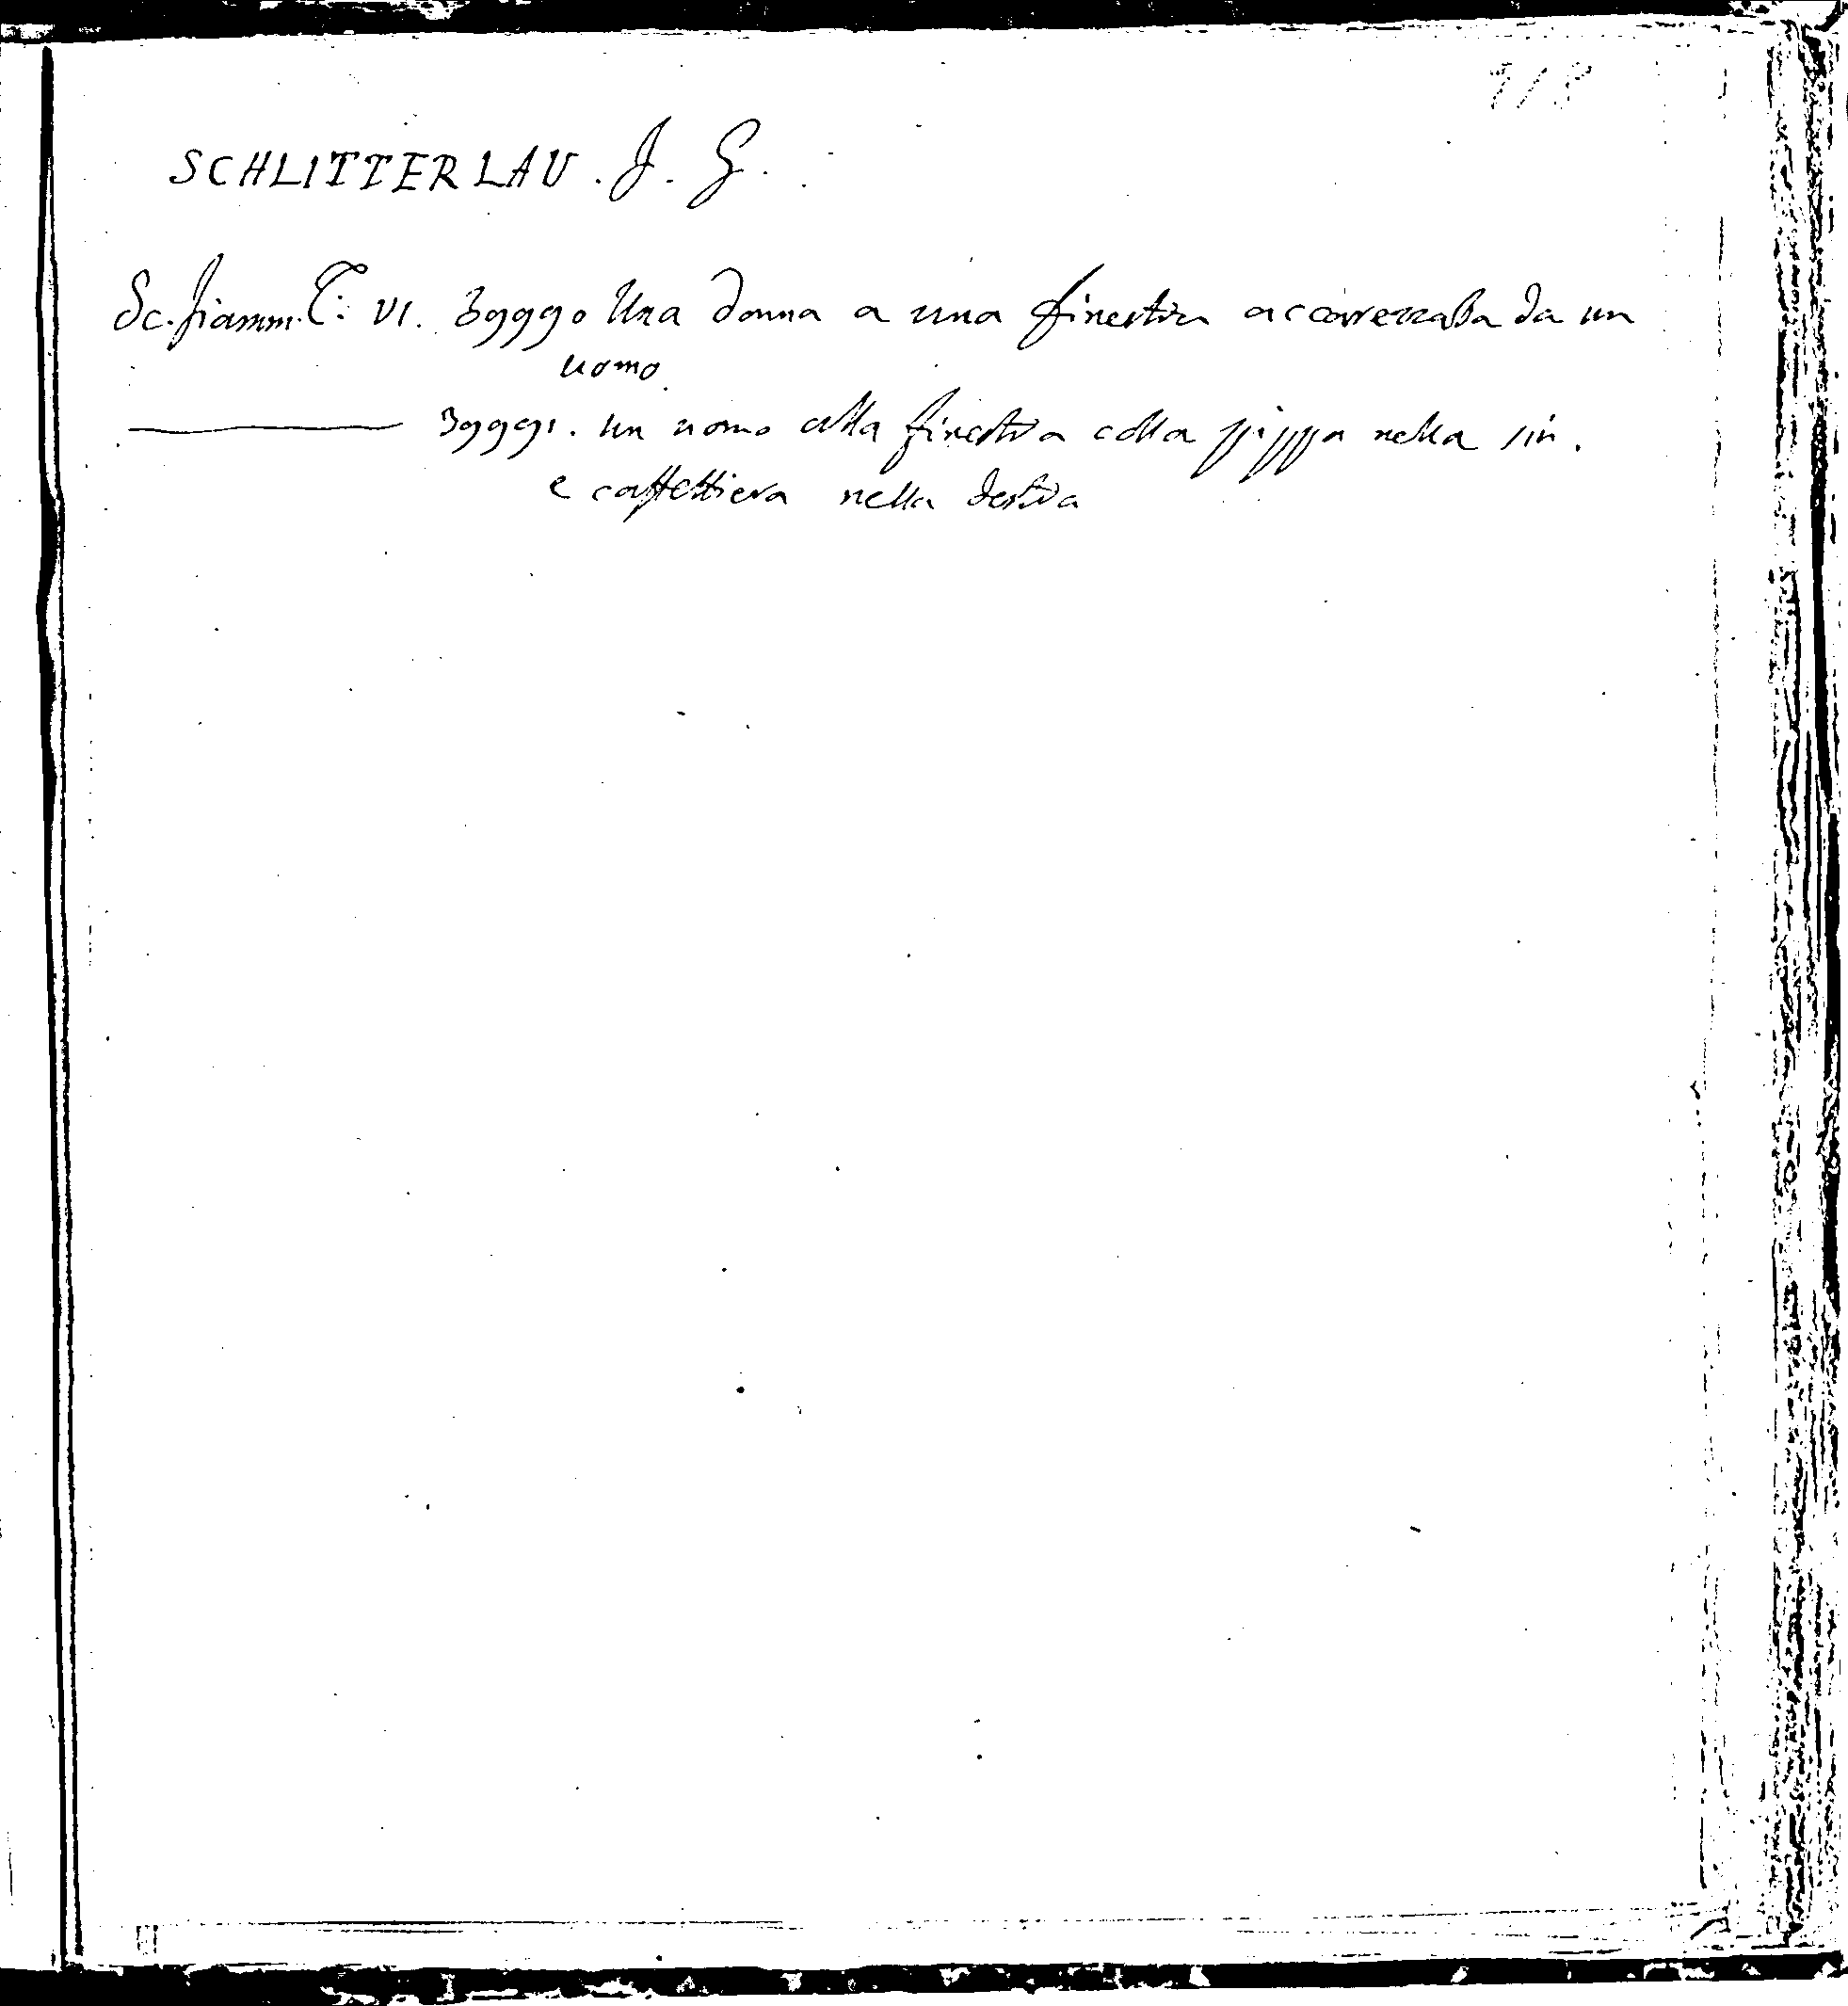 718
SCHLITTERLAU. J. G.
Sc. fiamm. T: VI. 399990 Una donna a una finestra accarezzata da un
uomo.
399991. un uomo alla finestra colla pippa nella sin.
e caffettiera nella destra